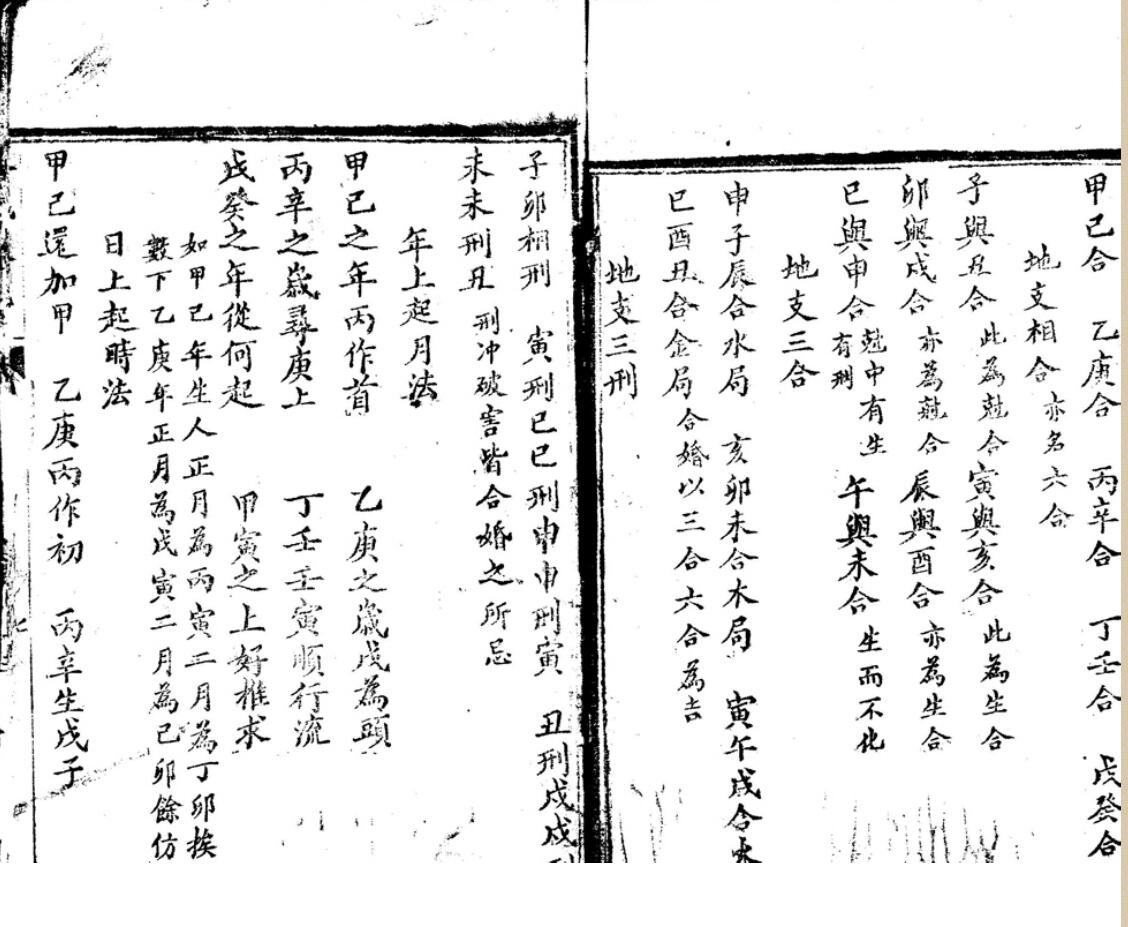 甲己合　乙庚合　丙辛合　丁壬合　戊癸合
地支相合　亦名六合
子與丑合　此為尅合　寅與亥合　此為生合
卯與戌合　亦為尅合　辰與酉合　亦為生合
巳與申合　尅中有生　有刑　午與未合　生而不化
地支三合
申子辰合水局　亥卯未合木局　寅午戌合火
巳酉丑合金局　合婚以三合六合為吉
地支三刑
子卯相刑　寅刑巳巳刑申申刑寅　丑刑戌戌刑
未未刑丑　刑冲破害皆合婚之所忌
年上起月法
甲己之年丙作首　乙庚之歲戊為頭
丙辛之歲尋庚上　丁壬壬寅順行流
戊癸之年從何起　甲寅之上好推求
如甲己年生人正月為丙寅二月為丁卯挨
數下乙庚年正月為戊寅二月為己卯餘仿
日上起時法
甲己還加甲　乙庚丙作初　丙辛生戊子